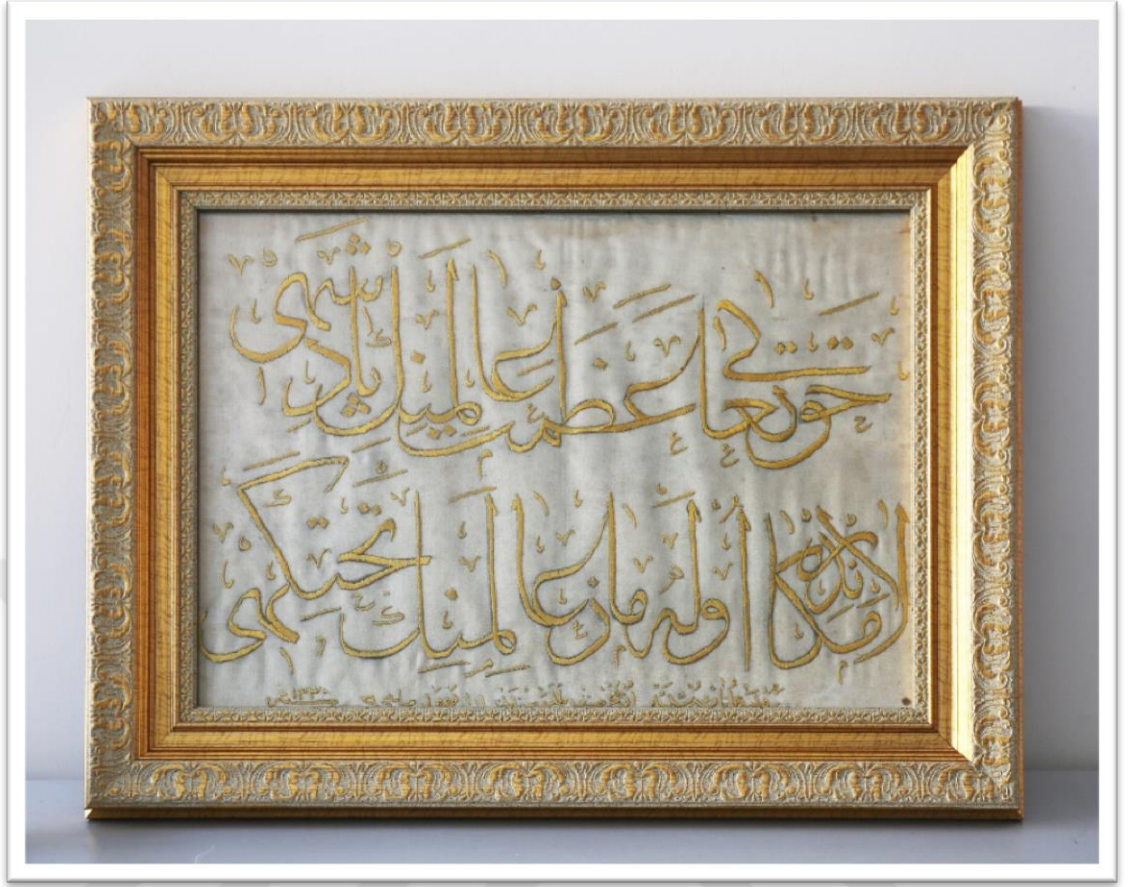 حق تعالى عظمت عالمينك پادشهى
لامكاندر اوله ماز عالمنك تختكهى